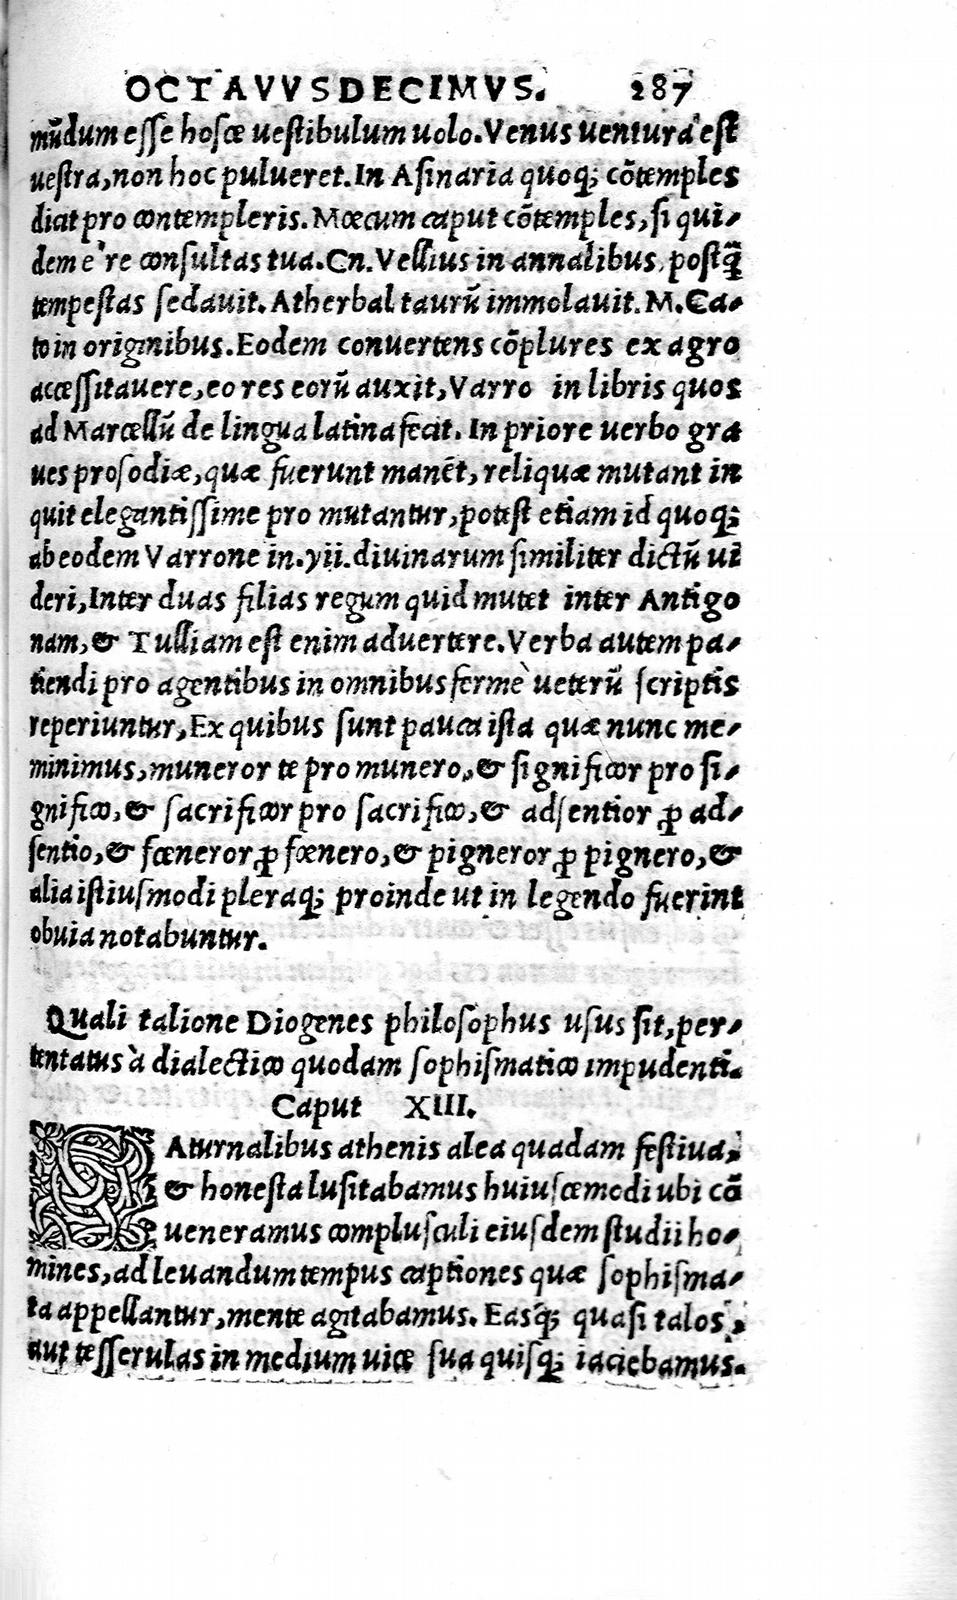 OCTAVVSDECIMVS. 287
mũdum esse hosce uestibulum uolo. Venus uentura est
uestra, non hoc pulueret. In Asinaria quoq; cõtemples
dicit pro contempleris. Mœcum caput cõtemples, si qui-
dem è re consultas tua. Cn. Vellius in annalibus, postq̃
tempestas sedauit. Atherbal taurũ immolauit. M. Ca-
to in originibus. Eodem conuertens cõplures ex agro
accessitauere, eo res eorũ auxit, Varro in libris quos
ad Marcellũ de lingua latina fecit. In priore uerbo gra
ues prosodiæ, quæ fuerunt manẽt, reliquæ mutant in
quit elegantissime pro mutantur, potest etiam id quoq;
ab eodem Varrone in. yii. diuinarum similiter dictũ ui
deri, Inter duas filias regum quid mutet inter Antigo
nam, & Tulliam est enim aduertere. Verba autem pa-
tiendi pro agentibus in omnibus fermè ueterũ scriptis
reperiuntur, Ex quibus sunt pauca ista quæ nunc me-
minimus, muneror te pro munero, & significor pro si-
gnifico, & sacrificor pro sacrifico, & adsentior ꝓ ad-
sentio, & fœneror ꝓ fœnero, & pigneror ꝓ pignero, &
alia istiusmodi pleraq; proinde ut in legendo fuerint
obuia notabuntur.
Quali talione Diogenes philosophus usus sit, per-
tentatus à dialectico quodam sophismatico impudenti.
Caput XIII.
SAturnalibus athenis alea quadam festiua,
& honesta lusitabamus huiuscemodi ubi cõ
ueneramus complusculi eiusdem studii ho-
mines, ad leuandum tempus captiones quæ sophisma-
ta appellantur, mente agitabamus. Easq́; quasi talos,
aut tesserulas in medium uice sua quisq; iaciebamus.